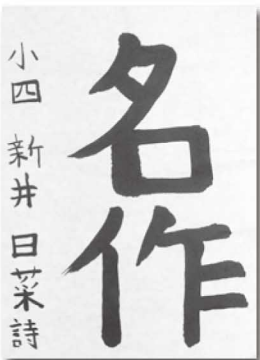 名作
小四 新井 日菜詩